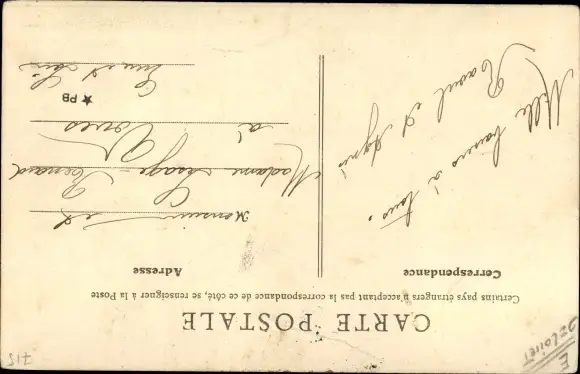 CARTE POSTALE
Certains pays étrangers n'acceptant pas la correspondance de ce côté, se renseigner à la Poste
Correspondance
Mille baisers à tous.
Raoul et Agnès
Adresse
Monsieur et
Madame Lesage-Renard
à Voves
Eure et Loir
★ PB
E
715